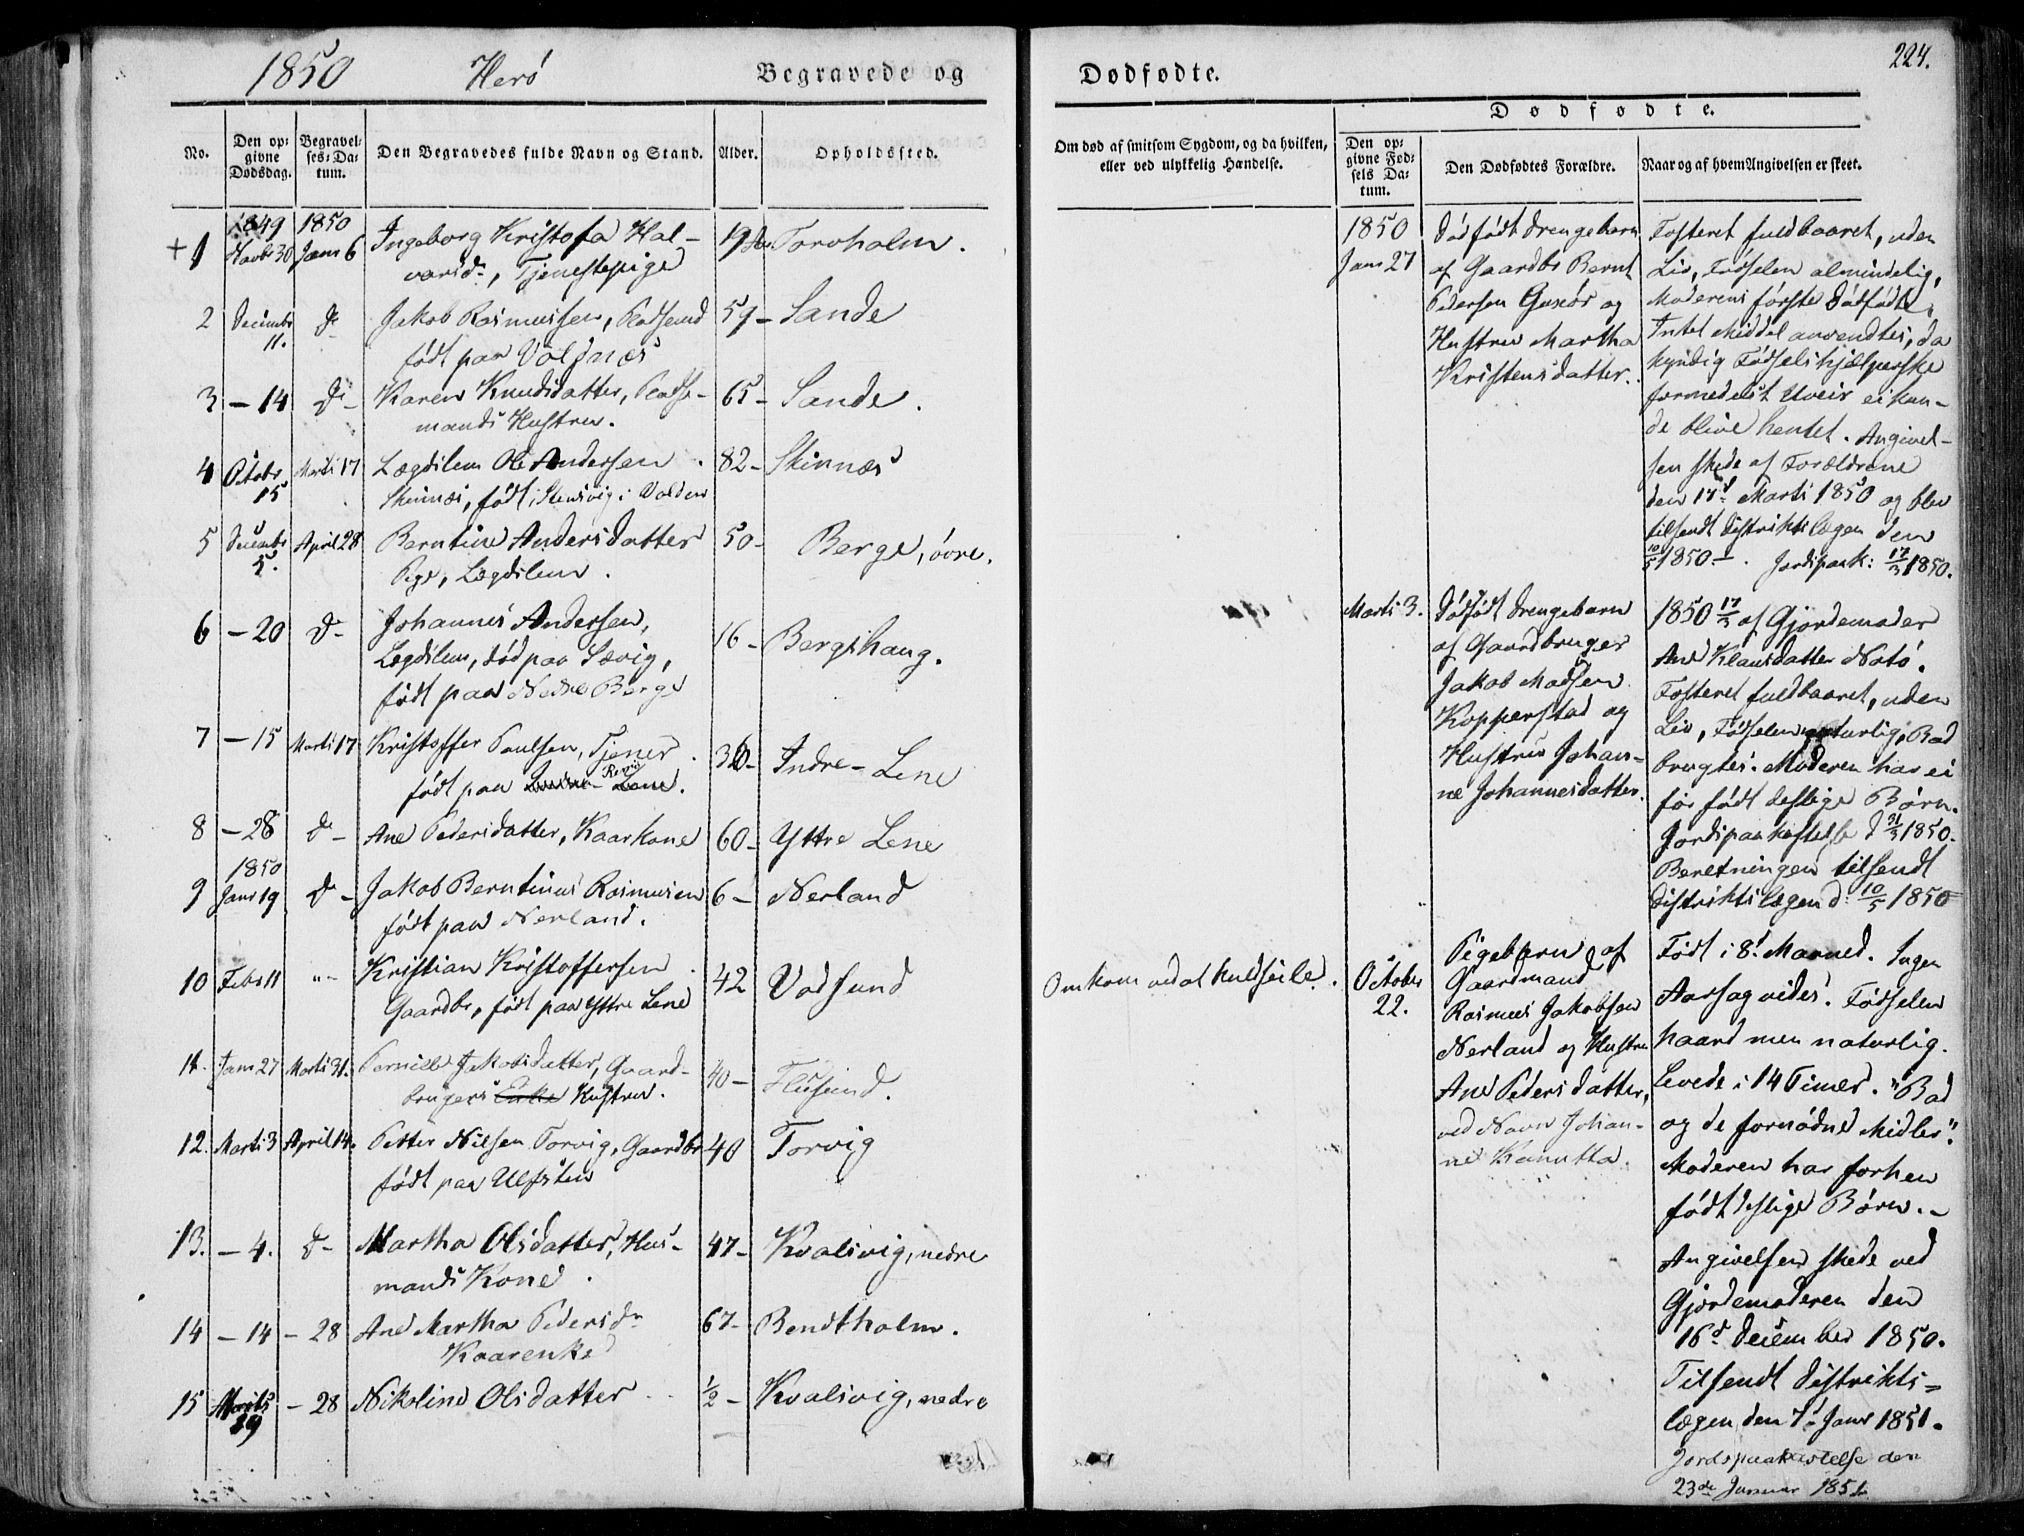 1850 Herø Begravede og
No.
Den op-
givne
Dødsdag.
Begravel-
ses-Da-
tum.
Den Begravedes fulde Navn og Stand.
Alder.
Opholdssted.
+ 1 1849 Novbr 30 1850 Janr 6 Ingeborg Kristofa Hal-
varsdr, Tjenestepige 19 Aar Torvholm.
2 Decembr 11. do Jakob Rasmussen, Pladsmd 59 - Sande
født paa Voldnæs
3 - 14 do - Karen Knudsdatter, Pladse- 65 - Sande.
mands Hustru.
4 Octobr 15 Marts 17 Lægdslem Ole Andersen 82 - Skinnæs
Skinnæs, født i Stensvig i Volden
5 Decembr 5. April 28 Berntine Andersdatter 50 - Berge, övre.
Pige, Lægdslem.
6 - 20 do - Johannes Andersen, 16 - Bergshaug.
Legdslem, død paa Sævig,
født paa Nedre Berge
7 - 15 Marts 17 Kristoffer Paulsen, Tjener 36 - Indre - Lene
født paa Lene.
8 - 28 do - Ane Pedersdatter, Kaarkone 60 - Yttre Lene
9 1850 Janr 19 do - Jakob Berntinus Rasmussen 6 - Nerland
født paa Nerland.
10 Febr 11 "- Kristian Kristoffersen 42 Vodsund
Gaardbr, født paa Yttre Lene
11. Janr 27 Marts 31. Pernille Jakobsdatter, Gaard- 40 - Flusund.
brugers Enke Hustru.
12. Marts 3 April 14. Petter Nilsen Torvig, Gaardbr 40 Torvig
født paa Ulfsten
13. - 4. do - Martha Olsdatter, Hus- 47 - Kvalsvig, nedre
mands Kone.
14 - 14 - 28 Ane Martha Pedersdr 67 - Bendtholm.
Kaarenke
15 Marts 29 - 28 Nikoline Olsdatter 1/2 - Kvalsvig, nedre
Dødfødte.
224.
Om død af smitsom Sygdom, og da hvilken,
eller ved ulykkelig Hændelse.
Dødfødte.
Den op-
givne Fød-
sels Da-
tum.
Den Dødfødtes Forældre.
Naar og af hvem Angivelsen er skeet.
1850
Janr 27
Dødfødt Drengebarn
af Gaardbr Bernt
Pedersen Gurskø og
Hustru Martha
Kristensdatter.
Fosteret fuldbaaret, uden
Liv, Fødselen almindelig,
Moderens første Dødfødte,
Intet Middel anvendtes, da
kyndig Fødselshjælperske
formedelst Uveir ei kun-
de blive hentet. Angivel-
sen skede af Forældrene
den 17d Marts 1850 og blev
tilsendt Distriktslægen den
10/5 1850. - Jordspaak: 17/3 1850.
Marts 3.
Dødfødt Drengebarn
af Gaardbruger
Jakob Madsen
Kopperstad og
Hustru Johan-
ne Johannesdatter.
1850 17/3 af Gjordemoder
Ane Klausdatter Notö.
Fosteret fuldbaaret, uden
Liv, Fødselen naturlig, Bad
brugtes. Moderen har ei
før født deslige Børn.
Jordspaakastelse d 31/3 1850.
Beretningen tilsendt
Distriktslægen d. 10/5 1850
Omkom ved at kuldseile.
October
22.
Pigebarn af
Gaardmand
Rasmus Jakobsen
Nerland og Hustru
Ane Pedersdatter,
ved Navn Johan-
ne Kanutta.
Født i 8d Maaned. Ingen
Aarsag vides. Fødselen
haard men naturlig.
Levede i 14 Timer. "Bad
og de fornødne Midler".
Moderen har forhen
født deslige Børn. -
Angivelsen skede ved
Gjordemoderen den
16d December 1850.
Tilsendt Distrikts-
lægen den 7d Janr 1851.
Jordspaakastelse den
23de Januar 1851.